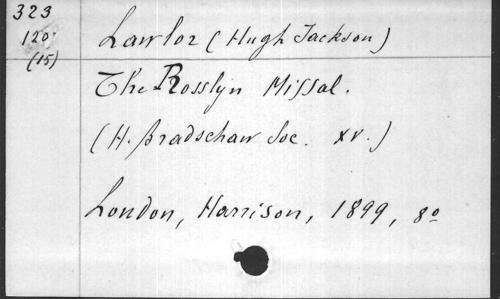 323
120
(15)
Lawlor (Hugh Jackson)
The Rosslyn Missal.
(H. Bradschaw Soc. XV.)
London, Harrison, 1899, 8o